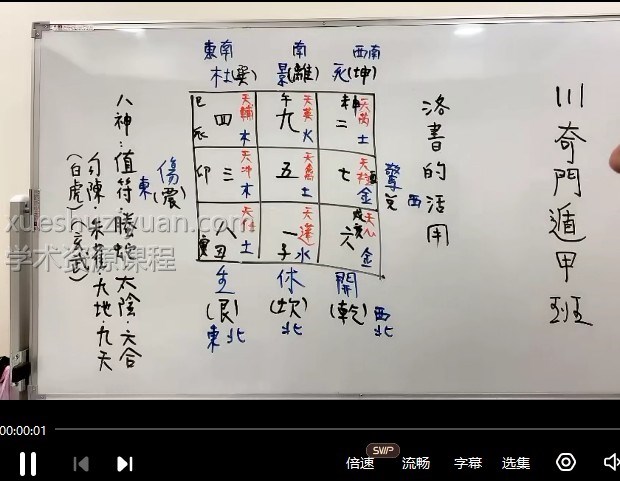 川奇門遁甲班
洛書的活用
八神：值符·騰蛇·太陰·六合
勾陳·朱雀·九地·九天
(白虎) (玄武)
東南
杜(巽)
南
景(離)
西南
死(坤)
巳 四 天輔
辰 木
午 九 天英
火
申 二 天芮
土
傷
東(震)
卯 三 天沖
木
五 天禽
土
七 天柱 酉
金
驚
兌
西
八 天任
寅 丑 土
一 天蓬
子 水
六 天心
戌亥 金
生
(艮)
東北
休
(坎)
北
開
(乾)
西北
xueshuziyuan.com
学术资源课程
00:00:01
SVIP
倍速 流畅 字幕 选集